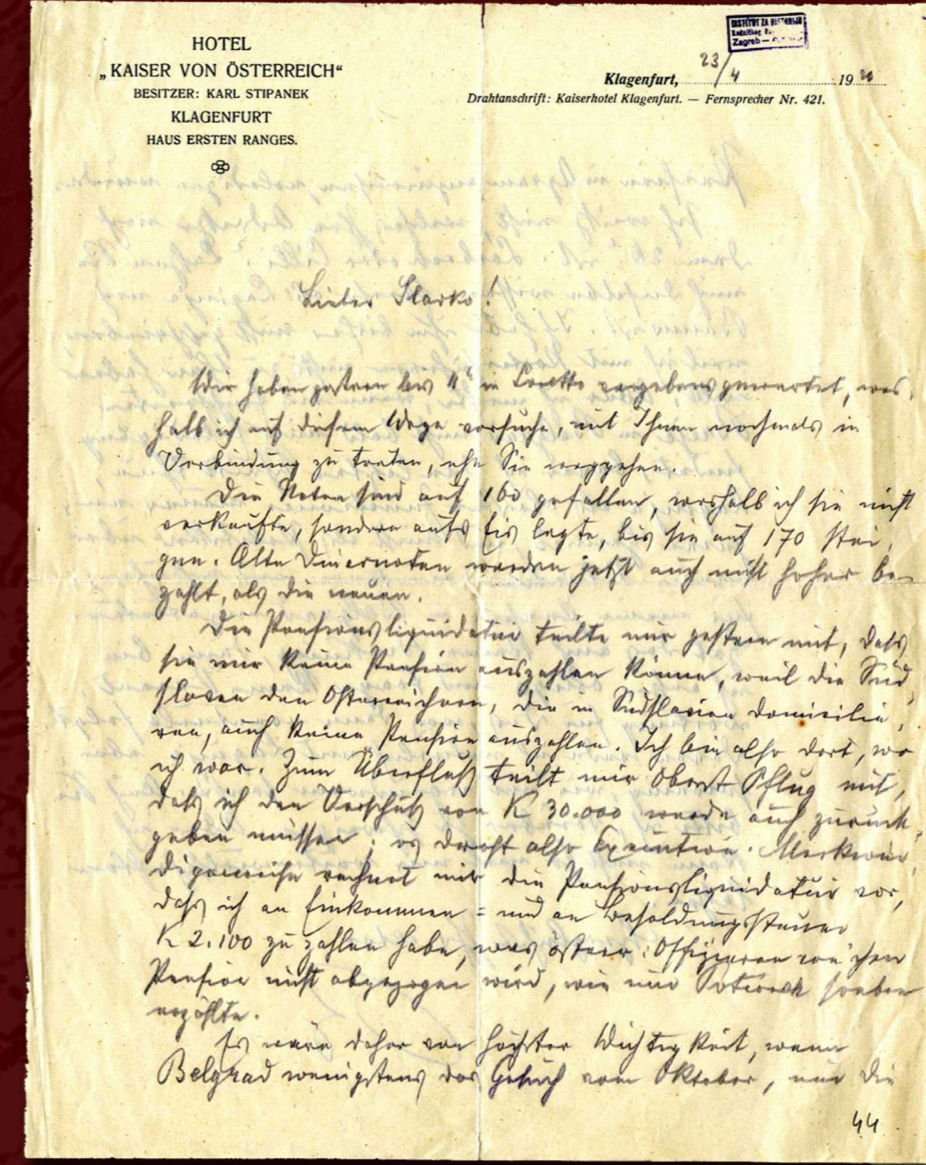 HOTEL
„KAISER VON ÖSTERREICH“
BESITZER: KARL STIPANEK
KLAGENFURT
HAUS ERSTEN RANGES.
INSTITUT ZA
Zagreb —
Klagenfurt, 23/4 1920
Drahtanschrift: Kaiserhotel Klagenfurt. — Fernsprecher Nr. 421.
Lieber Slarko!
Wir haben gestern bis 11h in Loretto vergebens gewartet, wes-
halb ich auf diesem Wege versuche, mit Ihnen nochmals in
Verbindung zu treten, ehe Sie weggehen.
Die Noten sind auf 160 gefallen, weshalb ich sie nicht
verkaufte, sondern aufs Eis legte, bis sie auf 170 stei-
gen. Alte Dinernoten werden jetzt auch nicht hoher be-
zahlt, als die neuen.
Die Pensionsliquidatur teilte mir gestern mit, dass
sie mir keine Pension auszahlen könne, weil die Süd-
slaven den Österreichern, die in Südslavien domicilie-
ren, auch keine Pension auszahlen. Ich bin also dort, wo
ich war. Zum Überfluß teilt mir Oberst Pflug mit,
daß ich den Vorschuß von K 30.000 werde auch zurück-
geben müssen; es droht also Execution. Merkwür-
digerweise rechnet mir die Pensionsliquidatur vor,
dass ich an Einkommen= und an Besoldungssteuer
K 2.100 zu zahlen habe, was österr. Offizieren von ihrer
Pension nicht abgezogen wird, wie mir Potiorek soeben
erzählte.
Es wäre daher von höchster Wichtigkeit, wenn
Belgrad wenigstens das Gesuch vom Oktober, mir die
44